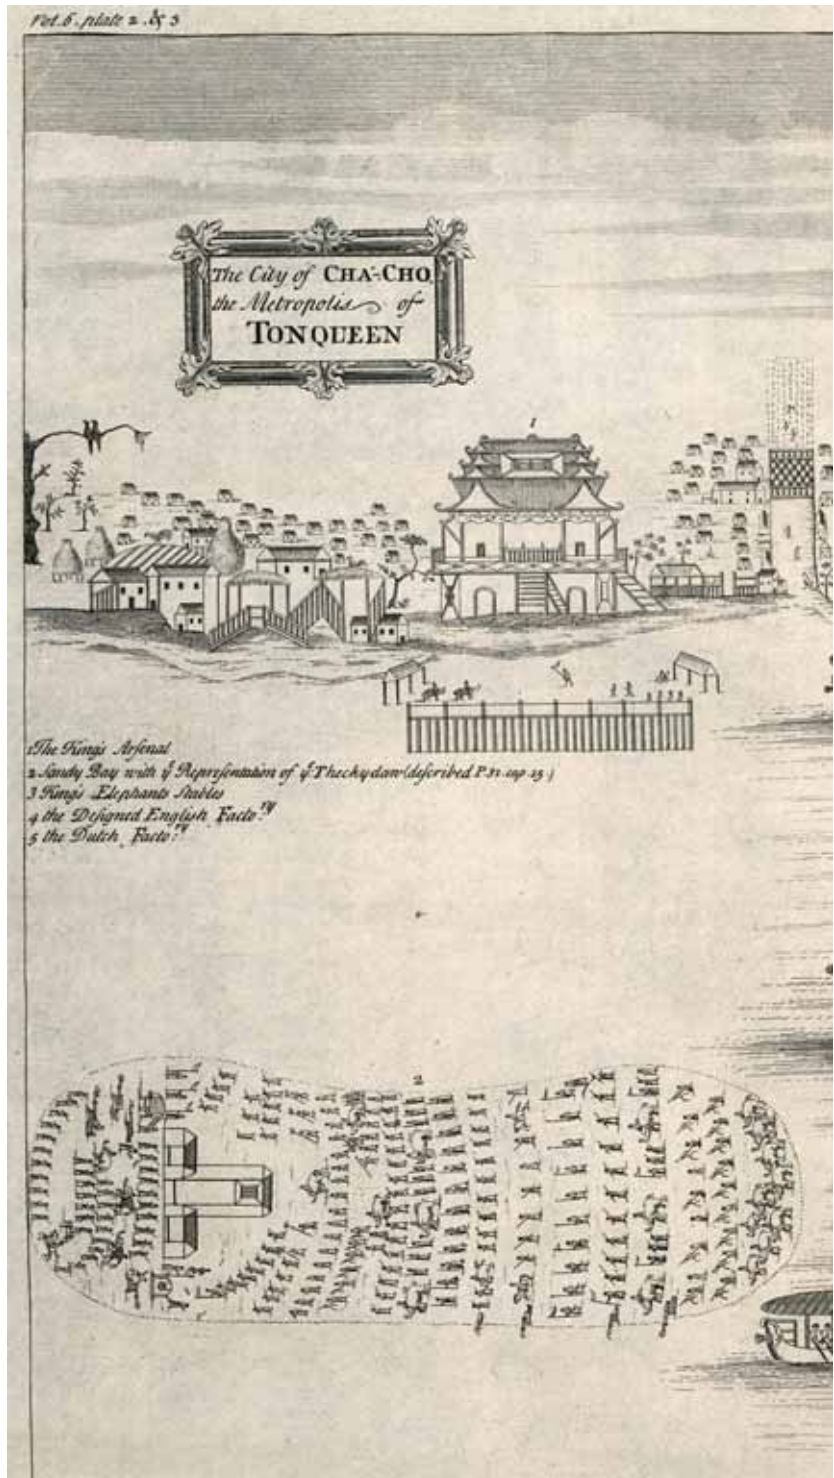 Vol. 6. plate 2. & 3
The City of CHA-CHO,
the Metropolis of
TONQUEEN
1
1 The King's Arsenal
2 Sandy Bay with yͤ Representation of yͤ Theckydaw (described P. 31. cap. 15.)
3 King's Elephants Stables
4 the Designed English Facto.ʳʸ
5 the Dutch Facto.ʳʸ
2